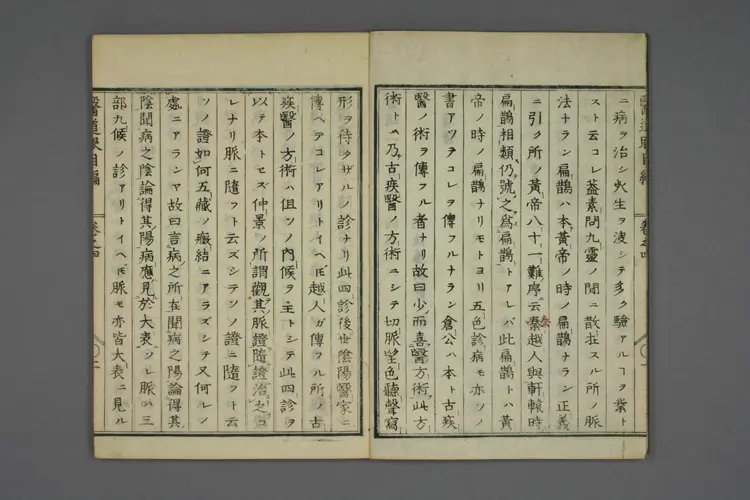 ニ病ヲ治シ死生ヲ決シテ多ク驗アルコヲ業ト
スト云コレ蓋素問九靈ノ間ニ散在スル所ノ脈
法ナラン扁鵲ハ本黃帝ノ時ノ扁鵲ナラン正義
ニ引ク所ノ黃帝八十一難序ニ云秦越人與軒轅時
扁鵲相類仍號之爲扁鵲トアレバ此扁鵲トハ黃
帝ノ時ノ扁鵲ナリモトヨリ五色診病モ亦ソノ
書アツテコレヲ傳フルナラン倉公ハ本ト古疾
醫ノ術ヲ傳フル者ナリ故曰少而喜醫方術此方
術トハ乃古疾醫ノ方術ニシテ切脈望色聽聲寫
形ヲ待タザルノ診ナリ此四診後世陰陽醫家ニ
傳ベテコレアリトイヘ𪜈越人ガ傳フル所ノ古
疾醫ノ方術ハ但ソノ內候ヲ主トシテ此四診ヲ
以テ本トセス仲景ノ所謂觀其脈證隨證治之コ
レナリ脈ニ隨フト云ズシテソノ證ニ隨フト云
ソノ證如何五藏ノ癥結ニアラズシテ又何レノ
處ニアランヤ故曰言病之所在聞病之陽論得其
陰聞病之陰論得其陽病應見於大表ソレ脈ハ三
部九候ノ診アリトイヘ𪜈脈モ亦皆大表ニ見ル
卷之四